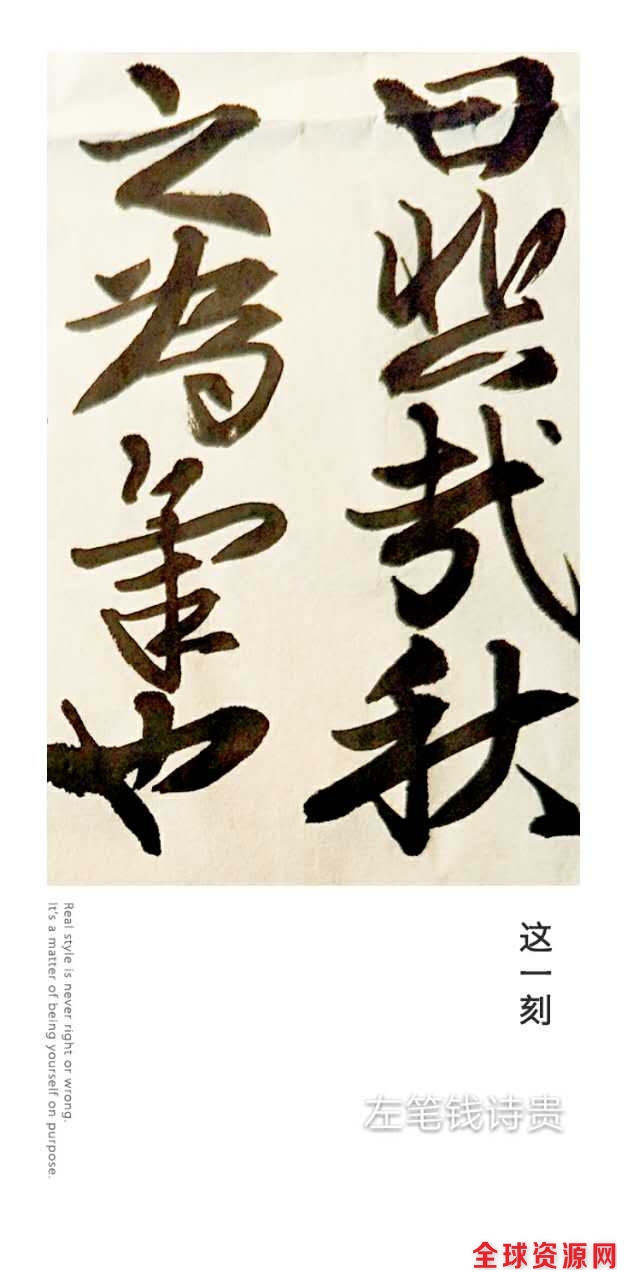 曰悲哉秋
之為氣也
这一刻
Real style is never right or wrong.
It's a matter of being yourself on purpose.
左笔钱诗贵
全球资源网